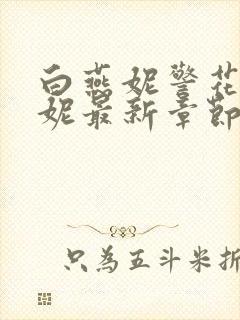 白燕妮警花
妮最新章節
只為五斗米折